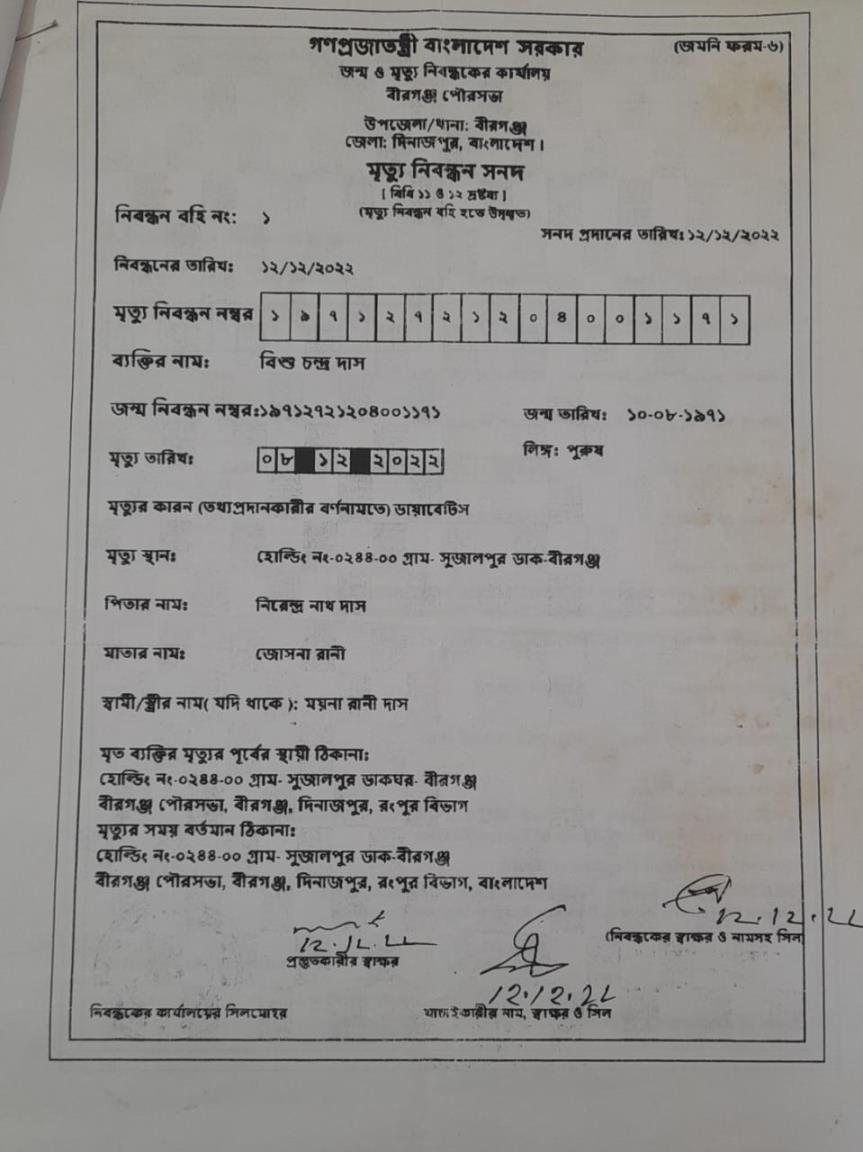 গণপ্রজাতন্ত্রী বাংলাদেশ সরকার
(জমনি ফরম-৬)
জন্ম ও মৃত্যু নিবন্ধকের কার্যালয়
বীরগঞ্জ পৌরসভা
উপজেলা/থানা: বীরগঞ্জ
জেলা: দিনাজপুর, বাংলাদেশ।
মৃত্যু নিবন্ধন সনদ
[ বিধি ১১ ও ১২ দ্রষ্টব্য ]
(মৃত্যু নিবন্ধন বহি হতে উদ্ধৃত)
নিবন্ধন বহি নং: ১
সনদ প্রদানের তারিখ: ১২/১২/২০২২
নিবন্ধনের তারিখ: ১২/১২/২০২২
মৃত্যু নিবন্ধন নম্বর ১ ৯ ৭ ১ ২ ৭ ২ ১ ২ ০ ৪ ০ ০ ১ ১ ৭ ১
ব্যক্তির নাম: বিশু চন্দ্র দাস
জন্ম নিবন্ধন নম্বর:১৯৭১২৭২১২০৪০০১১৭১ জন্ম তারিখ: ১০-০৮-১৯৭১
মৃত্যু তারিখ: ০৮ ১২ ২০২২ লিঙ্গ: পুরুষ
মৃত্যুর কারন (তথ্যপ্রদানকারীর বর্ণনামতে) ডায়াবেটিস
মৃত্যু স্থান: হোল্ডিং নং-০২৪৪-০০ গ্রাম- সুজালপুর ডাক-বীরগঞ্জ
পিতার নাম: নিরেন্দ্র নাথ দাস
মাতার নাম: জোসনা রানী
স্বামী/স্ত্রীর নাম( যদি থাকে ): ময়না রানী দাস
মৃত ব্যক্তির মৃত্যুর পূর্বের স্থায়ী ঠিকানা:
হোল্ডিং নং-০২৪৪-০০ গ্রাম- সুজালপুর ডাকঘর- বীরগঞ্জ
বীরগঞ্জ পৌরসভা, বীরগঞ্জ, দিনাজপুর, রংপুর বিভাগ
মৃত্যুর সময় বর্তমান ঠিকানা:
হোল্ডিং নং-০২৪৪-০০ গ্রাম- সুজালপুর ডাক-বীরগঞ্জ
বীরগঞ্জ পৌরসভা, বীরগঞ্জ, দিনাজপুর, রংপুর বিভাগ, বাংলাদেশ
12.12.22
(নিবন্ধকের স্বাক্ষর ও নামসহ সিল
12.12.22
প্রস্তুতকারীর স্বাক্ষর
12.12.22
নিবন্ধকের কার্যালয়ের সিলমোহর
যাচাইকারীর নাম, স্বাক্ষর ও সিল